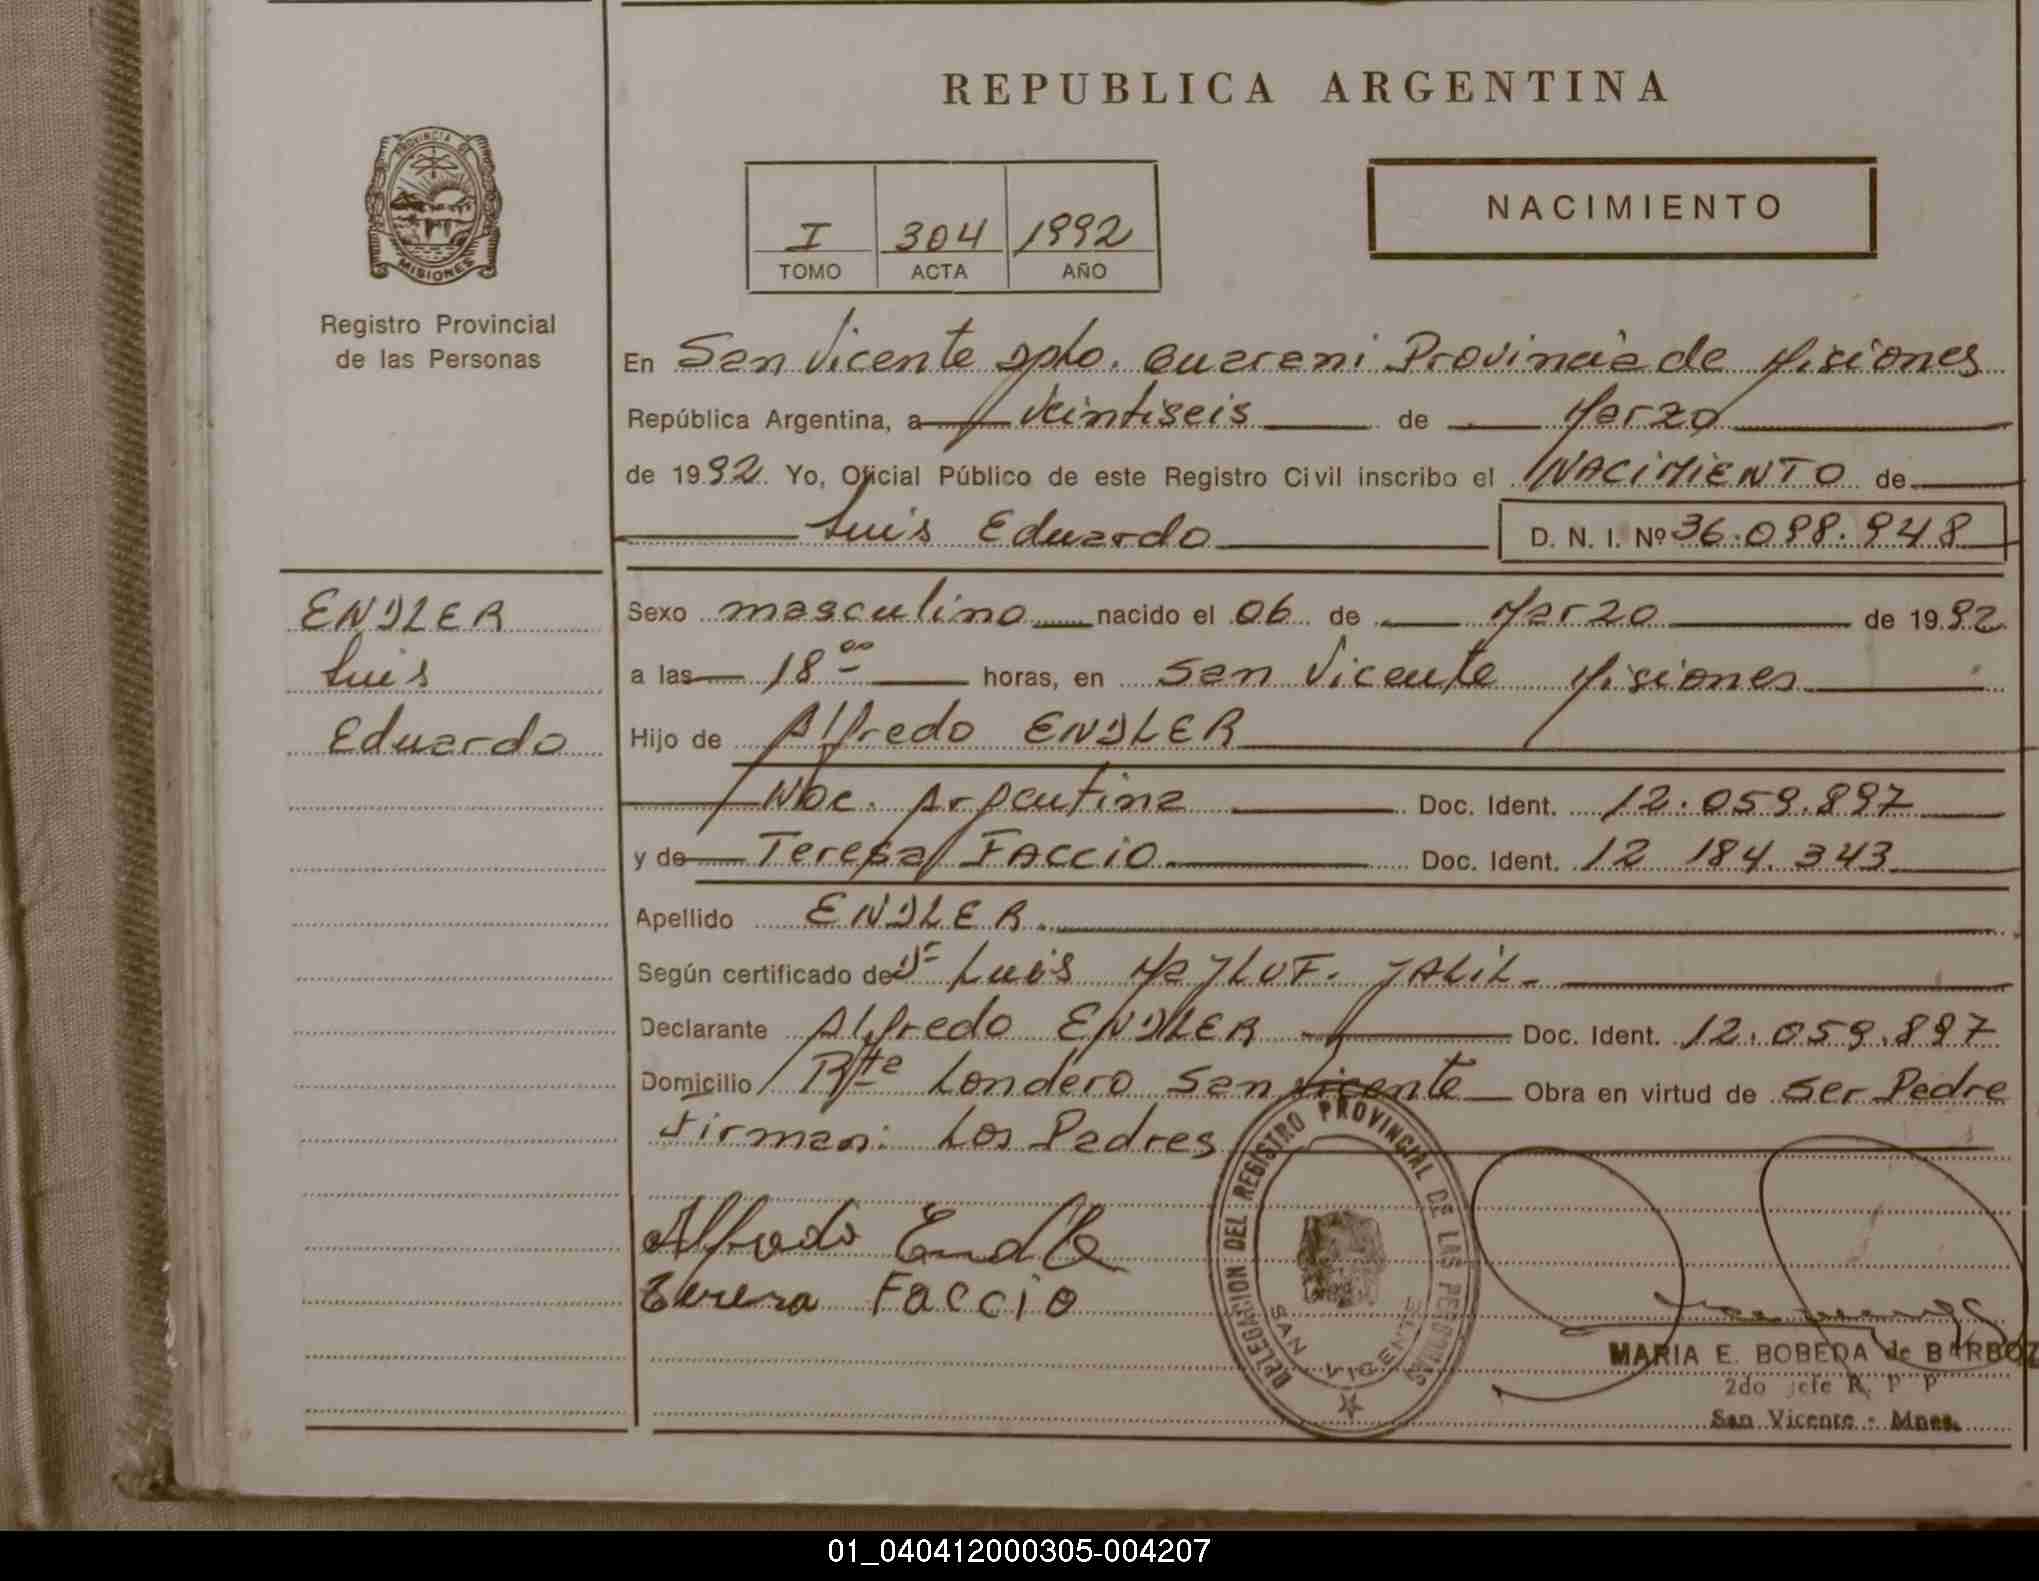 REPUBLICA ARGENTINA
PROVINCIA DE
MISIONES
Registro Provincial
de las Personas
NACIMIENTO
I 304 1992
TOMO ACTA AÑO
En San Vicente Dpto. Guarani Provincia de Misiones
República Argentina, a Veintiseis de Marzo
de 1992. Yo, Oficial Público de este Registro Civil inscribo el NACIMIENTO de
Luis Eduardo D. N. I. Nº 36.098.948
ENDLER
Luis
Eduardo
Sexo masculino nacido el 06 de Marzo de 1992
a las 18 00 horas, en San Vicente Misiones
Hijo de Alfredo ENDLER
Nac. Argentina Doc. Ident. 12.059.897
y de Teresa FACCIO Doc. Ident. 12 184.343
Apellido ENDLER.
Según certificado de Dr Luis JALIL
Declarante Alfredo ENDLER Doc. Ident. 12.059.897
Domicilio Londero San Vicente Obra en virtud de Ser Padre
Firman: Los Padres
Alfredo Endler
Teresa Faccio
DELEGACION DEL REGISTRO PROVINCIAL DE LAS PERSONAS
SAN VICENTE
MARIA E. BOBEDA de BARBOZ
2do Jefe R. P P
San Vicente - Mnes.
01_040412000305-004207